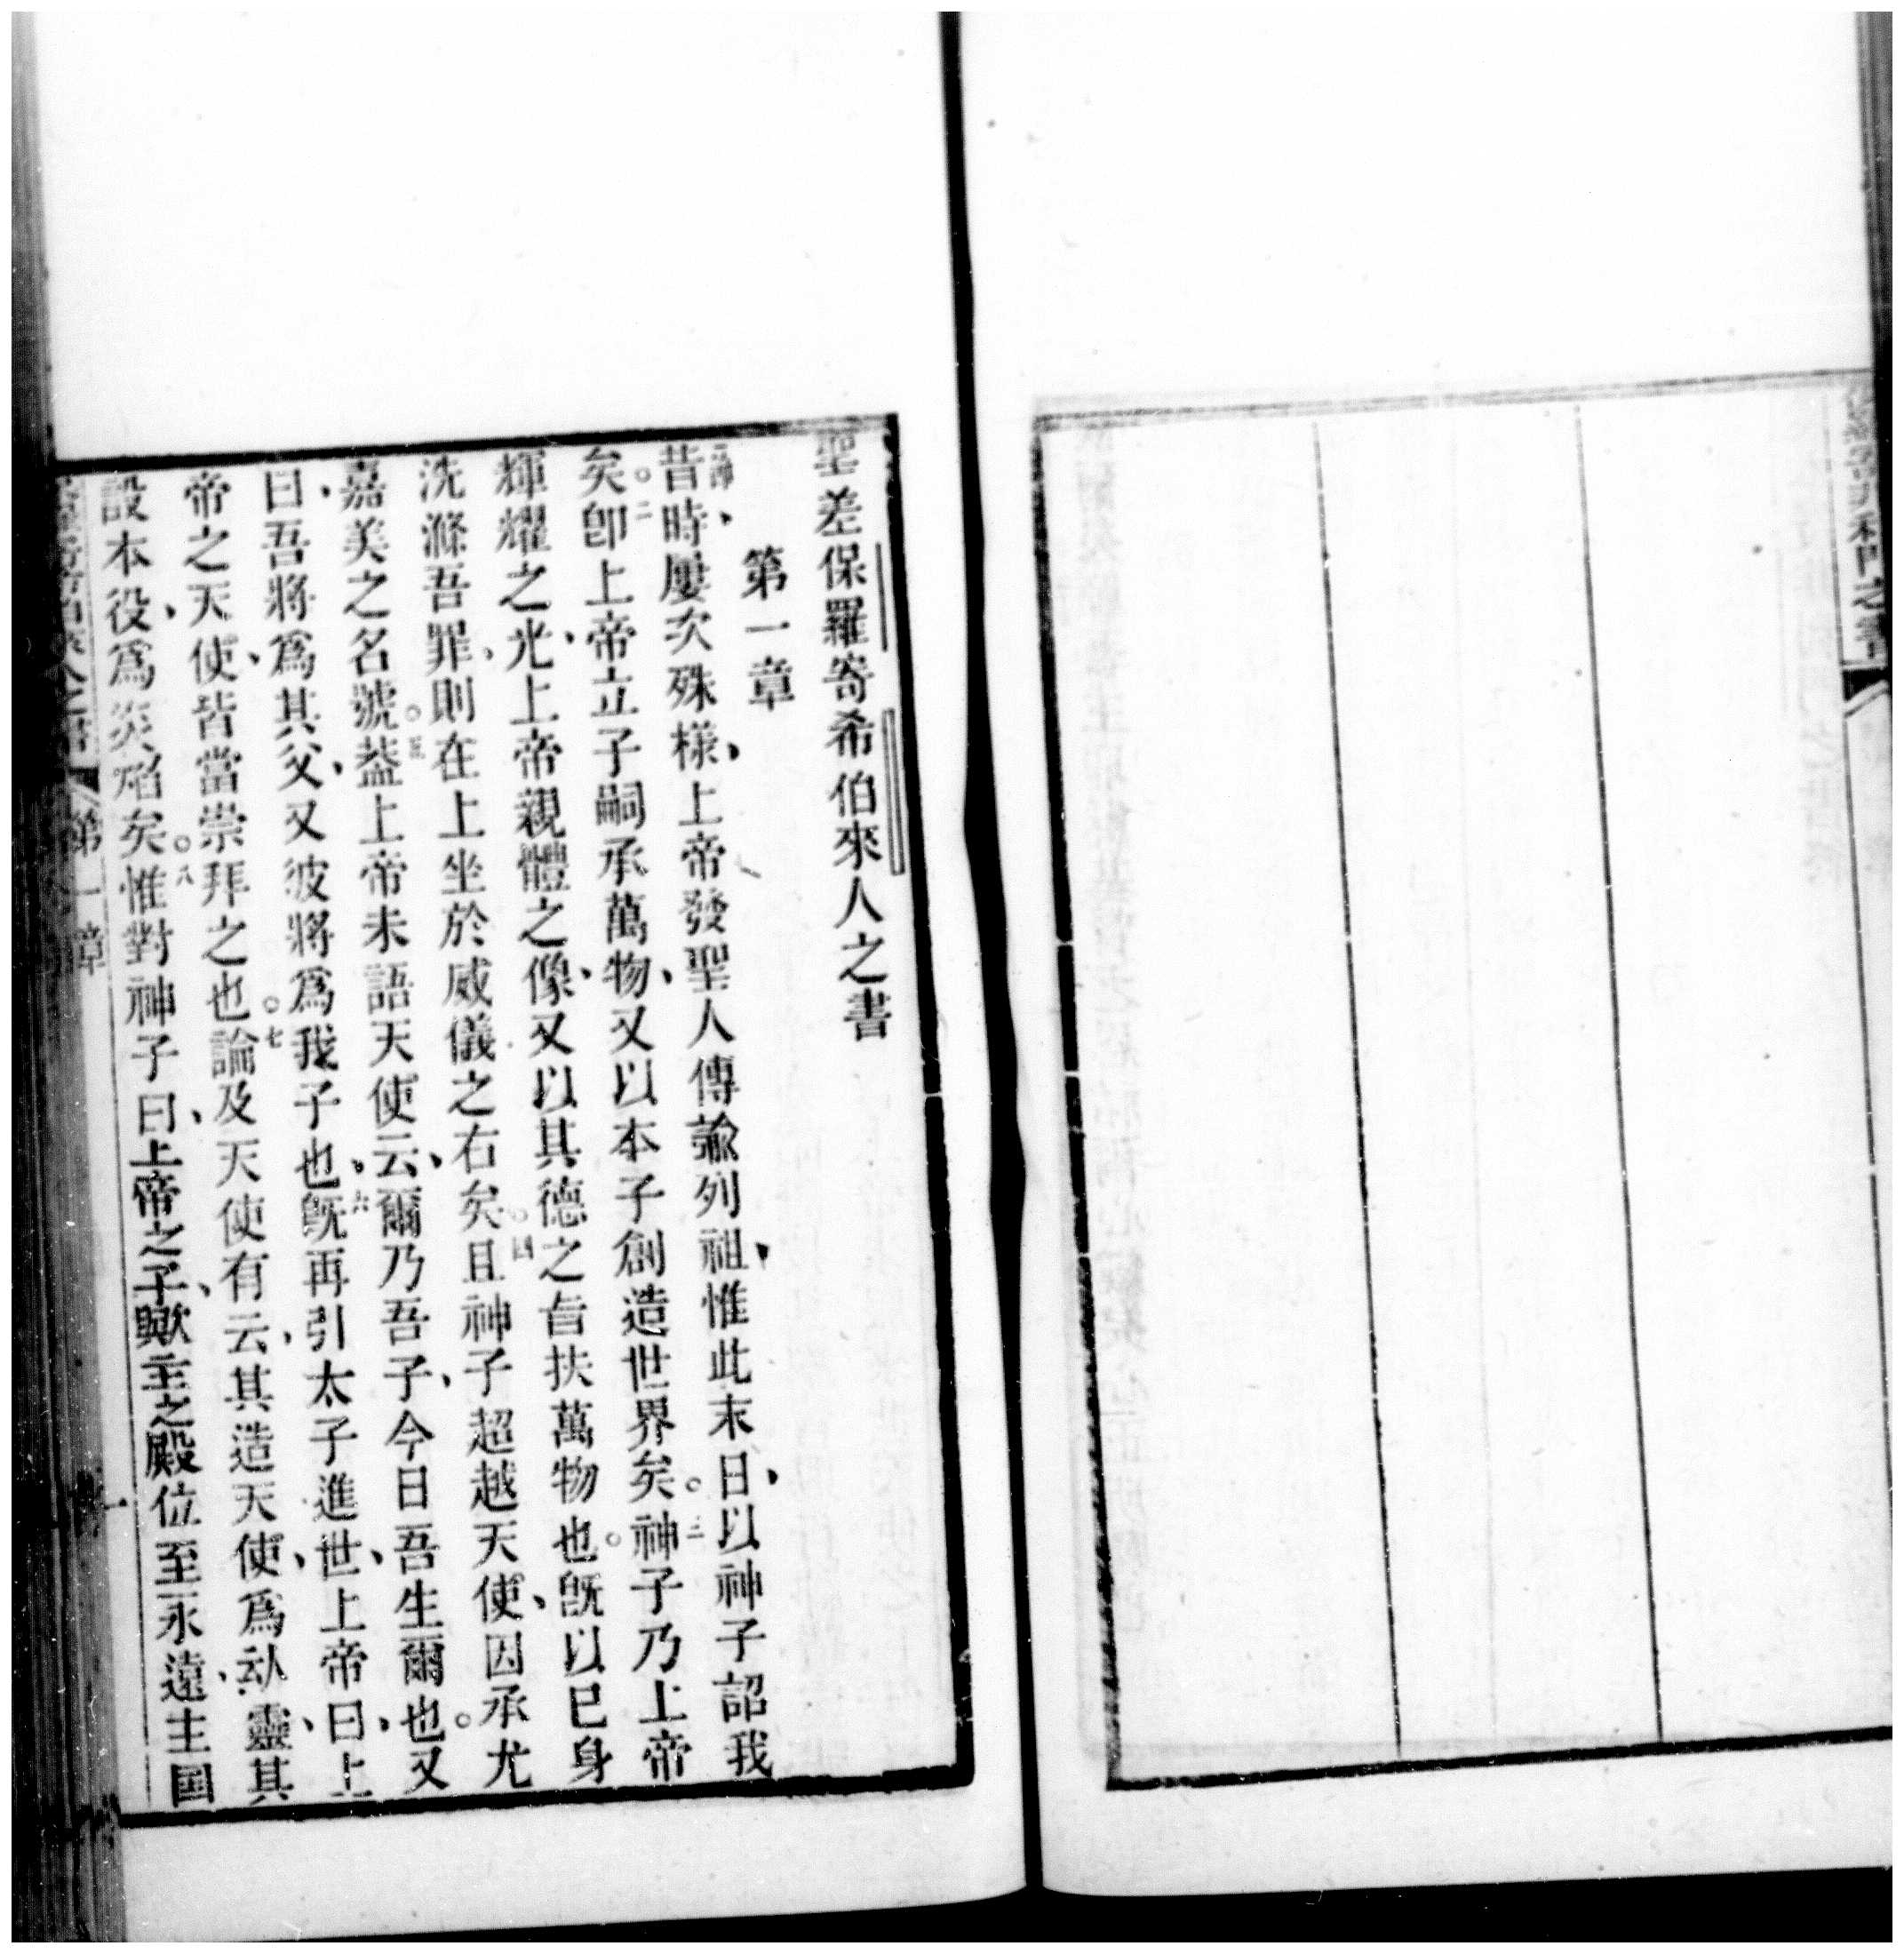 聖差保羅寄希伯來人之書
第一章
一節昔時屢次殊樣、上帝發聖人傳諭列祖、惟此末日、以神子詔我
矣。二卽上帝立子嗣承萬物、又以本子創造世界矣。三神子乃上帝
輝耀之光、上帝親體之像、又以其德之旨扶萬物也。旣以己身
洗滌吾罪、則在上坐於威儀之右矣。四且神子超越天使、因承尤
嘉美之名號。五蓋上帝未語天使云、爾乃吾子、今日吾生爾也。又
曰、吾將爲其父、又彼將爲我子也。六旣再引太子進世、上帝曰、上
帝之天使、皆當崇拜之也。七論及天使有云、其造天使爲靈、其
設本役、爲炎焰矣。八惟對神子曰、上帝之子歟、主之殿位至永遠、主国
第一章
一
之書